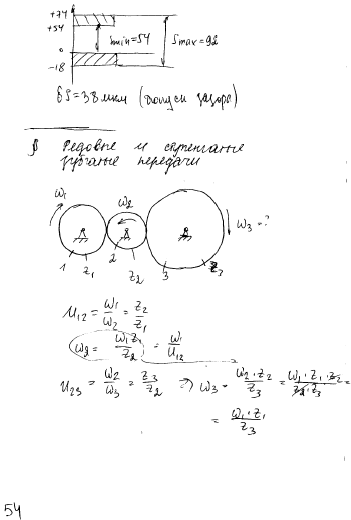 +74
+54
Smin=54
Smax=92
0
-18
δS=38 мкм (допуск зазора)
§ Рядовые и ступенчатые
зубчатые передачи
ω1
ω2
ω3 = ?
1 z1 2 z2 3 z3
U12 = ω1/ω2 = z2/z1
ω2 = ω1 z1/z2 = ω1/U12
U23 = ω2/ω3 = z3/z2 ⇒ ω3 = ω2·z2/z3 = ω1·z1·z2/z2·z3 =
= ω1·z1/z3
54